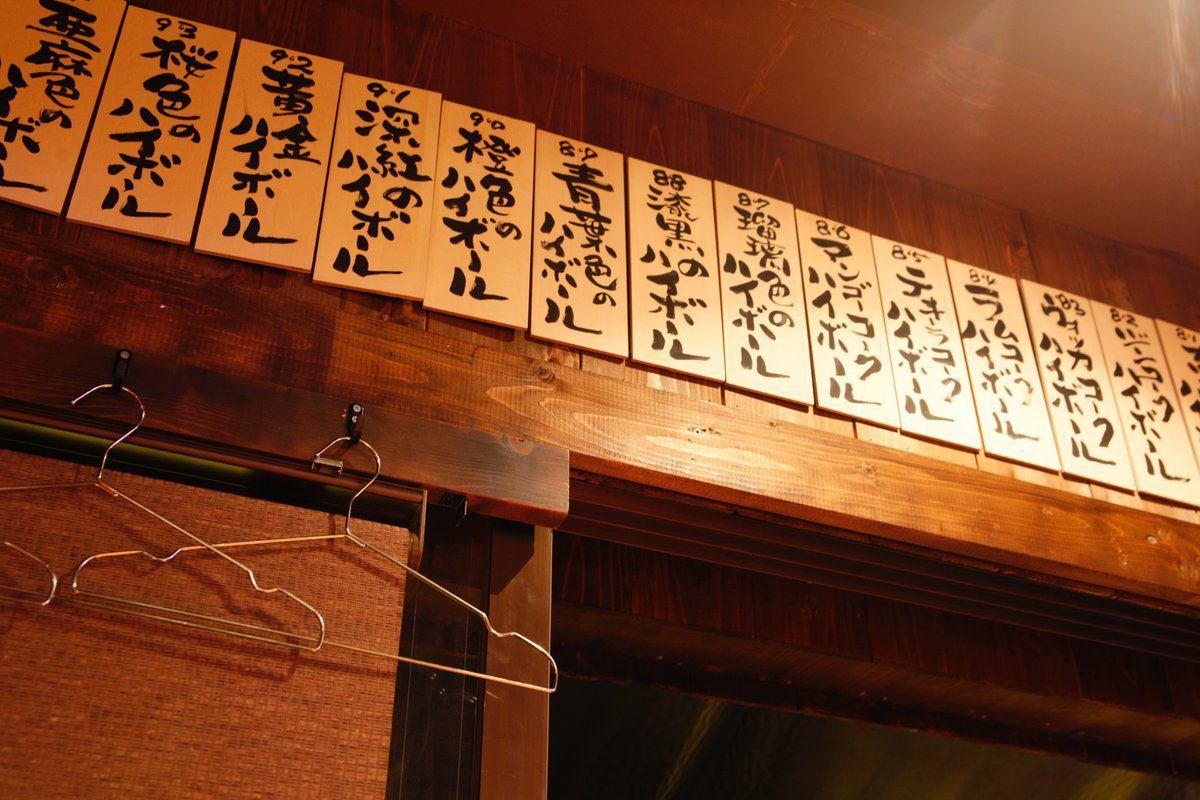 亜麻色の
ハイボール
93
桜色の
ハイボール
92
黄金
ハイボール
91
深紅の
ハイボール
90
橙色の
ハイボール
89
青葉色の
ハイボール
88
漆黒の
ハイボール
87
瑠璃色の
ハイボール
86
マンゴコーク
ハイボール
85
テキーラコーク
ハイボール
84
ラムコーク
ハイボール
83
ウォッカコーク
ハイボール
82
ジンコーク
ハイボール